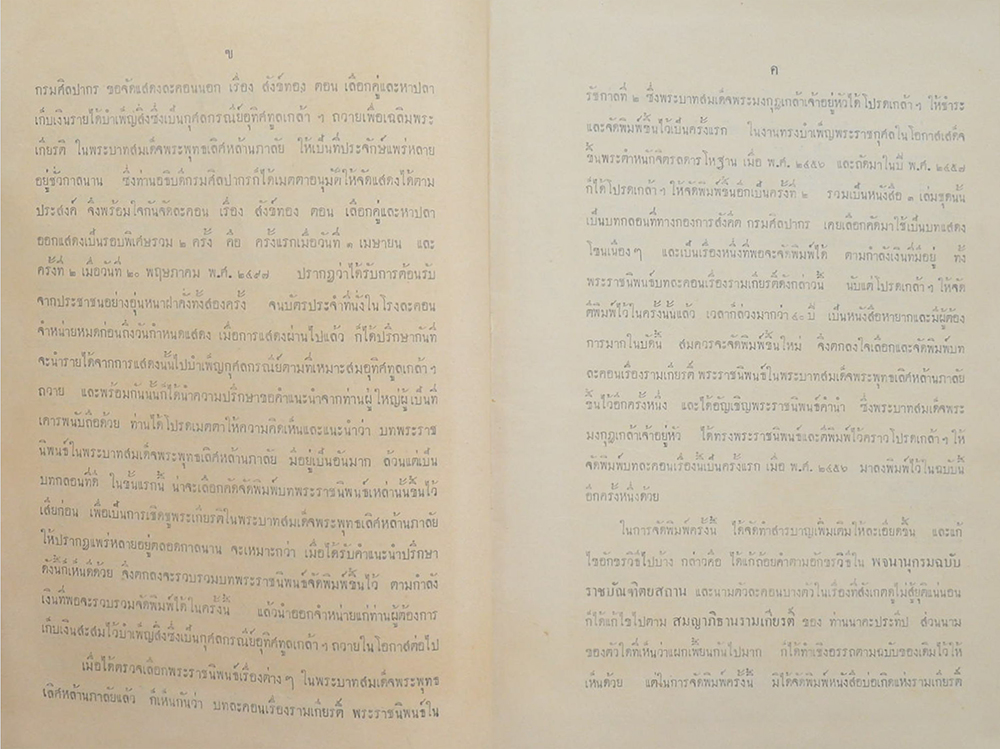 ข
กรมศิลปากร ขอจัดแสดงละคอนนอก เรื่อง สังข์ทอง ตอน เลือกคู่และหาปลา
เก็บเงินรายได้บำเพ็ญสิ่งซึ่งเป็นกุศลกรณีย์อุทิศทูลเกล้า ฯ ถวายเพื่อเฉลิมพระ
เกียรติ ในพระบาทสมเด็จพระพุทธเลิศหล้านภาลัย ให้เป็นที่ประจักษ์แพร่หลาย
อยู่ชั่วกาลนาน ซึ่งท่านอธิบดีกรมศิลปากรก็ได้เมตตาอนุมัติให้จัดแสดงได้ตาม
ประสงค์ จึงพร้อมใจกันจัดละคอน เรื่อง สังข์ทอง ตอน เลือกคู่และหาปลา
ออกแสดงเป็นรอบพิเศษรวม ๒ ครั้ง คือ ครั้งแรกเมื่อวันที่ ๑ เมษายน และ
ครั้งที่ ๒ เมื่อวันที่ ๒๐ พฤษภาคม พ.ศ. ๒๔๙๗ ปรากฏว่าได้รับการต้อนรับ
จากประชาชนอย่างอุ่นหนาฝาคั่งทั้งสองครั้ง จนบัตรประจำที่นั่งในโรงละคอน
จำหน่ายหมดก่อนถึงวันกำหนดแสดง เมื่อการแสดงผ่านไปแล้ว ก็ได้ปรึกษากันที่
จะนำรายได้จากการแสดงนั้นไปบำเพ็ญกุศลกรณีย์ตามที่เหมาะสมอุทิศทูลเกล้า ฯ
ถวาย และพร้อมกันนั้นก็ได้นำความปรึกษาขอคำแนะนำจากท่านผู้ใหญ่ผู้เป็นที่
เคารพนับถือด้วย ท่านได้โปรดเมตตาให้ความคิดเห็นและแนะนำว่า บทพระราช
นิพนธ์ในพระบาทสมเด็จพระพุทธเลิศหล้านภาลัย มีอยู่เป็นอันมาก ล้วนแต่เป็น
บทกลอนที่ดี ในชั้นแรกนี้ น่าจะเลือกคัดจัดพิมพ์บทพระราชนิพนธ์เหล่านั้นขึ้นไว้
เสียก่อน เพื่อเป็นการเชิดชูพระเกียรติในพระบาทสมเด็จพระพุทธเลิศหล้านภาลัย
ให้ปรากฏแพร่หลายอยู่ตลอดกาลนาน จะเหมาะกว่า เมื่อได้รับคำแนะนำปรึกษา
ดังนี้ก็เห็นดีด้วย จึงตกลงจะรวบรวมบทพระราชนิพนธ์จัดพิมพ์ขึ้นไว้ ตามกำลัง
เงินที่พอจะรวบรวมจัดพิมพ์ได้ในครั้งนี้ แล้วนำออกจำหน่ายแก่ท่านผู้ต้องการ
เก็บเงินสะสมไว้บำเพ็ญสิ่งซึ่งเป็นกุศลกรณีย์อุทิศทูลเกล้า ฯ ถวายในโอกาสต่อไป
เมื่อได้ตรวจเลือกพระราชนิพนธ์เรื่องต่าง ๆ ในพระบาทสมเด็จพระพุทธ
เลิศหล้านภาลัยแล้ว ก็เห็นกันว่า บทละคอนเรื่องรามเกียรติ์ พระราชนิพนธ์ใน
ค
รัชกาลที่ ๒ ซึ่งพระบาทสมเด็จพระมงกุฎเกล้าเจ้าอยู่หัวได้โปรดเกล้า ฯ ให้ชำระ
และจัดพิมพ์ขึ้นไว้เป็นครั้งแรก ในงานทรงบำเพ็ญพระราชกุศลในโอกาสเสด็จ
ขึ้นพระตำหนักจิตรลดารโหฐาน เมื่อ พ.ศ. ๒๔๕๖ และถัดมาในปี พ.ศ. ๒๔๕๗
ก็ได้โปรดเกล้า ฯ ให้จัดพิมพ์ขึ้นอีกเป็นครั้งที่ ๒ รวมเป็นหนังสือ ๑ เล่มชุดนั้น
เป็นบทกลอนที่ทางกองการสังคีต กรมศิลปากร เคยเลือกคัดมาใช้เป็นบทแสดง
โขนเนื่อง ๆ และเป็นเรื่องหนึ่งที่พอจะจัดพิมพ์ได้ ตามกำลังเงินที่มีอยู่ ทั้ง
พระราชนิพนธ์บทละคอนเรื่องรามเกียรติ์ดังกล่าวนี้ นับแต่โปรดเกล้า ฯ ให้จัด
ตีพิมพ์ไว้ในครั้งนั้นแล้ว เวลาก็ล่วงมากว่า ๔๐ ปี เป็นหนังสือหายากและมีผู้ต้อง
การมากในบัดนี้ สมควรจะจัดพิมพ์ขึ้นใหม่ จึงตกลงใจเลือกและจัดพิมพ์บท
ละคอนเรื่องรามเกียรติ์ พระราชนิพนธ์ในพระบาทสมเด็จพระพุทธเลิศหล้านภาลัย
ขึ้นไว้อีกครั้งหนึ่ง และได้อัญเชิญพระราชนิพนธ์คำนำ ซึ่งพระบาทสมเด็จพระ
มงกุฎเกล้าเจ้าอยู่หัว ได้ทรงพระราชนิพนธ์และตีพิมพ์ไว้คราวโปรดเกล้า ฯ ให้
จัดพิมพ์บทละคอนเรื่องนี้เป็นครั้งแรก เมื่อ พ.ศ. ๒๔๕๖ มาลงพิมพ์ไว้ในฉบับนี้
อีกครั้งหนึ่งด้วย
ในการจัดพิมพ์ครั้งนี้ ได้จัดทำสารบาญเพิ่มเติมให้ละเอียดขึ้น และแก้
ไขอักขรวิธีไปบ้าง กล่าวคือ ได้แก้ถ้อยคำตามอักขรวิธีใน พจนานุกรมฉบับ
ราชบัณฑิตยสถาน และนามตัวละคอนบางตัวในเรื่องที่สังเกตดูไม่สู้ยุติแน่นอน
ก็ได้แก้ไขไปตาม สมญาภิธานรามเกียรติ์ ของ ท่านนาคะประทีป ส่วนนาม
ของตัวใดที่เห็นว่าแผกเพี้ยนกันไปมาก ก็ได้ทำเชิงอรรถตามฉบับของเดิมไว้ให้
เห็นด้วย แต่ในการจัดพิมพ์ครั้งนี้ มิได้จัดพิมพ์หนังสือบ่อเกิดแห่งรามเกียรติ์